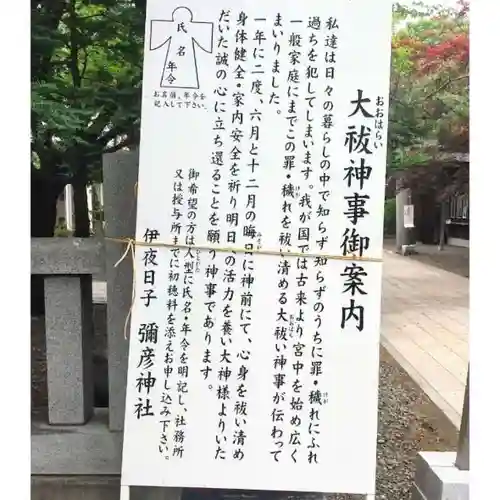 大祓神事御案内
おおはらい
私達は日々の暮らしの中で知らず知らずのうちに罪・穢れにふれ
けが
過ちを犯してしまいます。我が国では古来より宮中を始め広く
一般家庭にまでこの罪・穢れを祓い清める大祓い神事が伝わって
けが
おおはら
まいりました。
一年に二度、六月と十二月の晦日に神前にて、心身を祓い清め
みそか
身体健全・家内安全を祈り明日への活力を養い大神様よりいた
だいた誠の心に立ち還ることを願う神事であります。
御希望の方は人型に氏名・年令を明記し、社務所
ひとがた
又は授与所までに初穂料を添えお申し込み下さい。
伊夜日子 彌彦神社
氏名
年令
お名前、年令を
記入して下さい